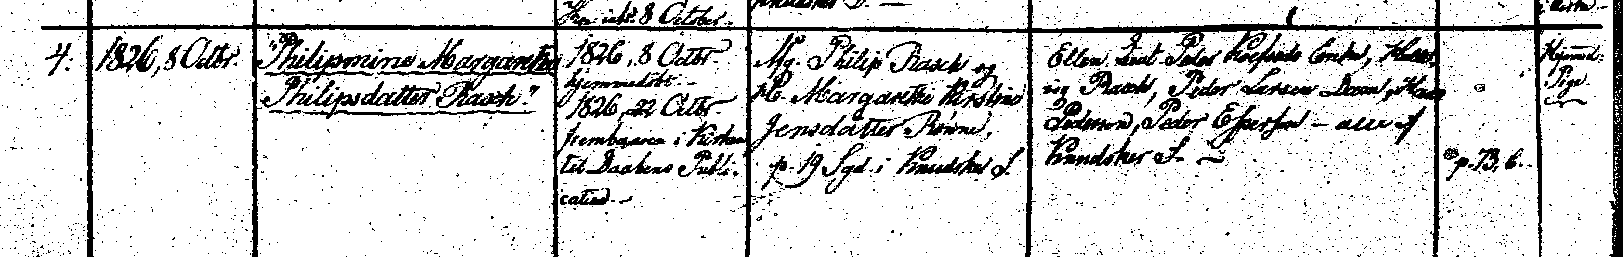 8 October.
4.
1826, 8 Octbr.
"Philipmine Margarethe
Philipsdatter Rasch."
1826, 8 Octbr.
hjemmedöbt -
1826, 22 Octbr.
frembaaren i Kirken
til Daabens Publi-
cation -
Mg. Philip Rasch og
H. Margarethe Kirstine
Jensdatter Rönne,
p. 19 Sgd. i Knudsker S.
Ellen, Lieut Peder Kofoeds Enke,
og Rasch, Peder Larsen Dam, Hans
Pedersen, Peder Espersen - alle af
Knudsker S. -
p. 73, 6.
Hjemd.
Pige